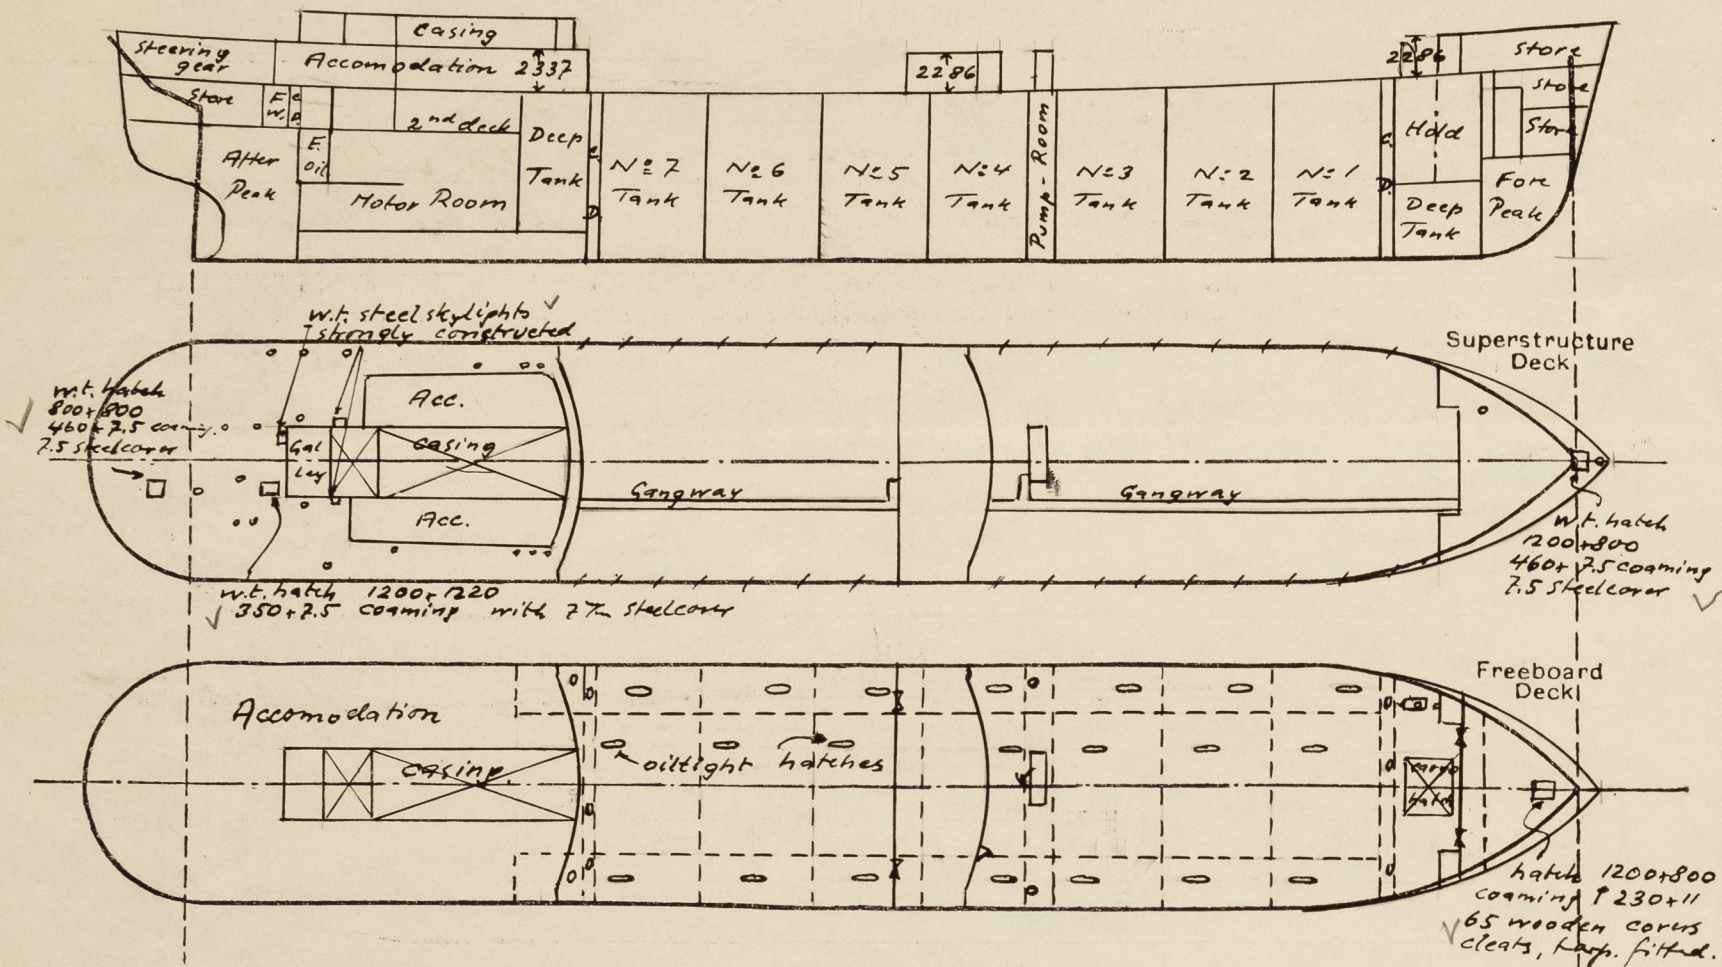 casing
steering
gear
Accomodation 2337
2286
2286
store
Store
F.
W.
C.
D.
2nd deck
Deep
Tank
store
Store
Hold
After
Peak
F.
oil
Motor Room
C.
D.
No 7
Tank
No 6
Tank
No 5
Tank
No 4
Tank
Pump-Room
No 3
Tank
No 2
Tank
No 1
Tank
C.
D.
Deep
Tank
Fore
Peak
w.t. steel skylights
strongly constructed
Superstructure
Deck
w.t. hatch
800+800
460+7.5 coam.
7.5 steelcover
Acc.
Gal
ley
casing
Acc.
Gangway
Gangway
w.t. hatch
1200+800
460+7.5 coaming
7.5 steelcover
w.t. hatch 1200+1220
350+7.5 coaming with 7 m/m steelcover
Freeboard
Deck
Accomodation
casing
oiltight hatches
cargo
hatch
hatch 1200+800
coaming ↑ 230+11
65 wooden covers
cleats, tarp. fitted.